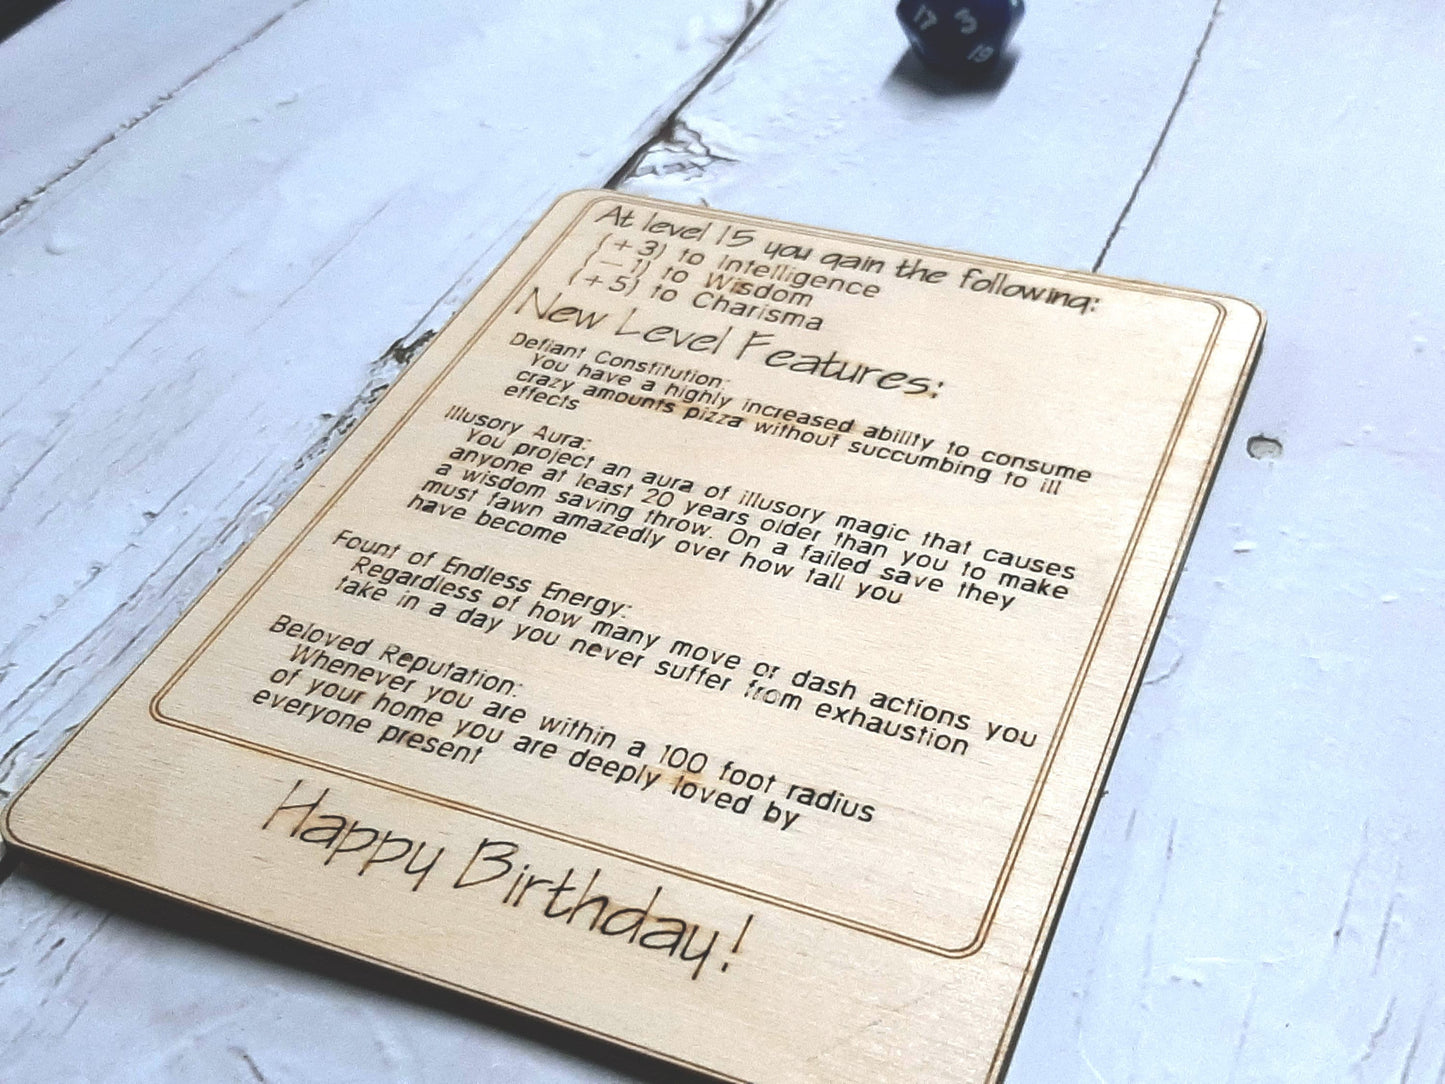 17 3 19
At level 15 you gain the following:
(+3) to Intelligence
(-1) to Wisdom
(+5) to Charisma
New Level Features:
Defiant Constitution:
You have a highly increased ability to consume
crazy amounts pizza without succumbing to ill
effects
Illusory Aura:
You project an aura of illusory magic that causes
anyone at least 20 years older than you to make
a wisdom saving throw. On a failed save they
must fawn amazedly over how tall you
have become
Fount of Endless Energy:
Regardless of how many move or dash actions you
take in a day you never suffer from exhaustion
Beloved Reputation:
Whenever you are within a 100 foot radius
of your home you are deeply loved by
everyone present
Happy Birthday!